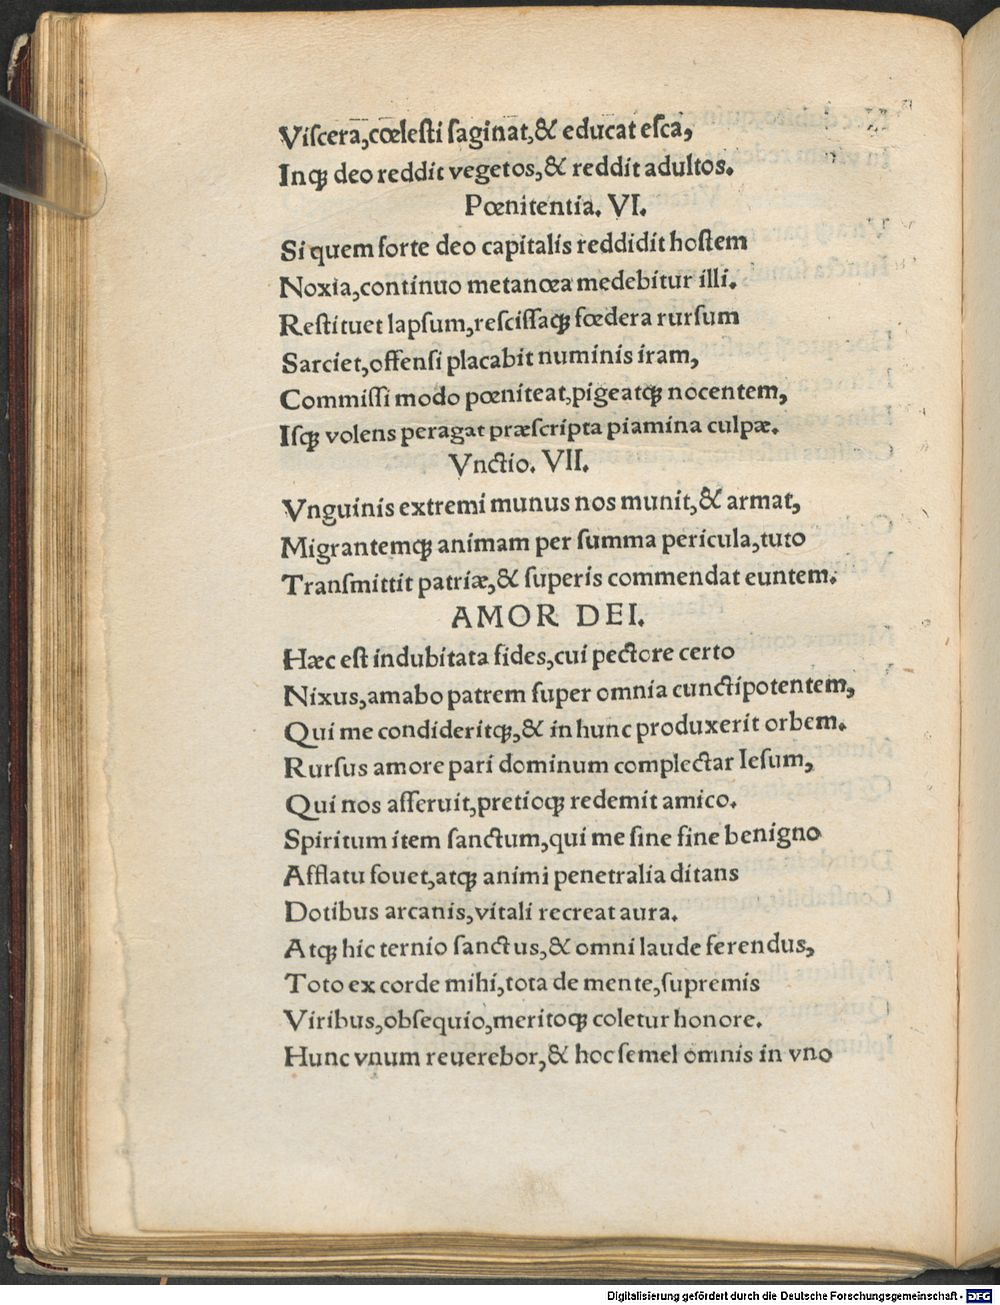 Viſcera,cœleſti ſaginat,& educat eſca,
Inq; deo reddit vegetos,& reddit adultos.
Pœnitentia. VI.
Si quem forte deo capitalis reddidit hoſtem
Noxia,continuo metanœa medebitur illi.
Reſtituet lapſum,reſciſſaq; fœdera rurſum
Sarciet,offenſi placabit numinis iram,
Commiſſi modo pœniteat,pigeatq; nocentem,
Iſq; volens peragat præſcripta piamina culpæ.
Vnctio. VII.
Vnguinis extremi munus nos munit,& armat,
Migrantemq; animam per ſumma pericula,tuto
Tranſmittit patriæ,& ſuperis commendat euntem.
AMOR DEI.
Hæc eſt indubitata fides,cui pectore certo
Nixus,amabo patrem ſuper omnia cunctipotentem,
Qui me condideritq;,& in hunc produxerit orbem.
Rurſus amore pari dominum complectar Ieſum,
Qui nos aſſeruit,pretioq; redemit amico.
Spiritum item ſanctum,qui me ſine fine benigno
Afflatu fouet,atq; animi penetralia ditans
Dotibus arcanis,vitali recreat aura.
Atq; hic ternio ſanctus,& omni laude ferendus,
Toto ex corde mihi,tota de mente,ſupremis
Viribus,obſequio,meritoq; coletur honore.
Hunc vnum reuerebor,& hoc ſemel omnis in vno
Digitalisierung gefördert durch die Deutsche Forschungsgemeinschaft - DFG